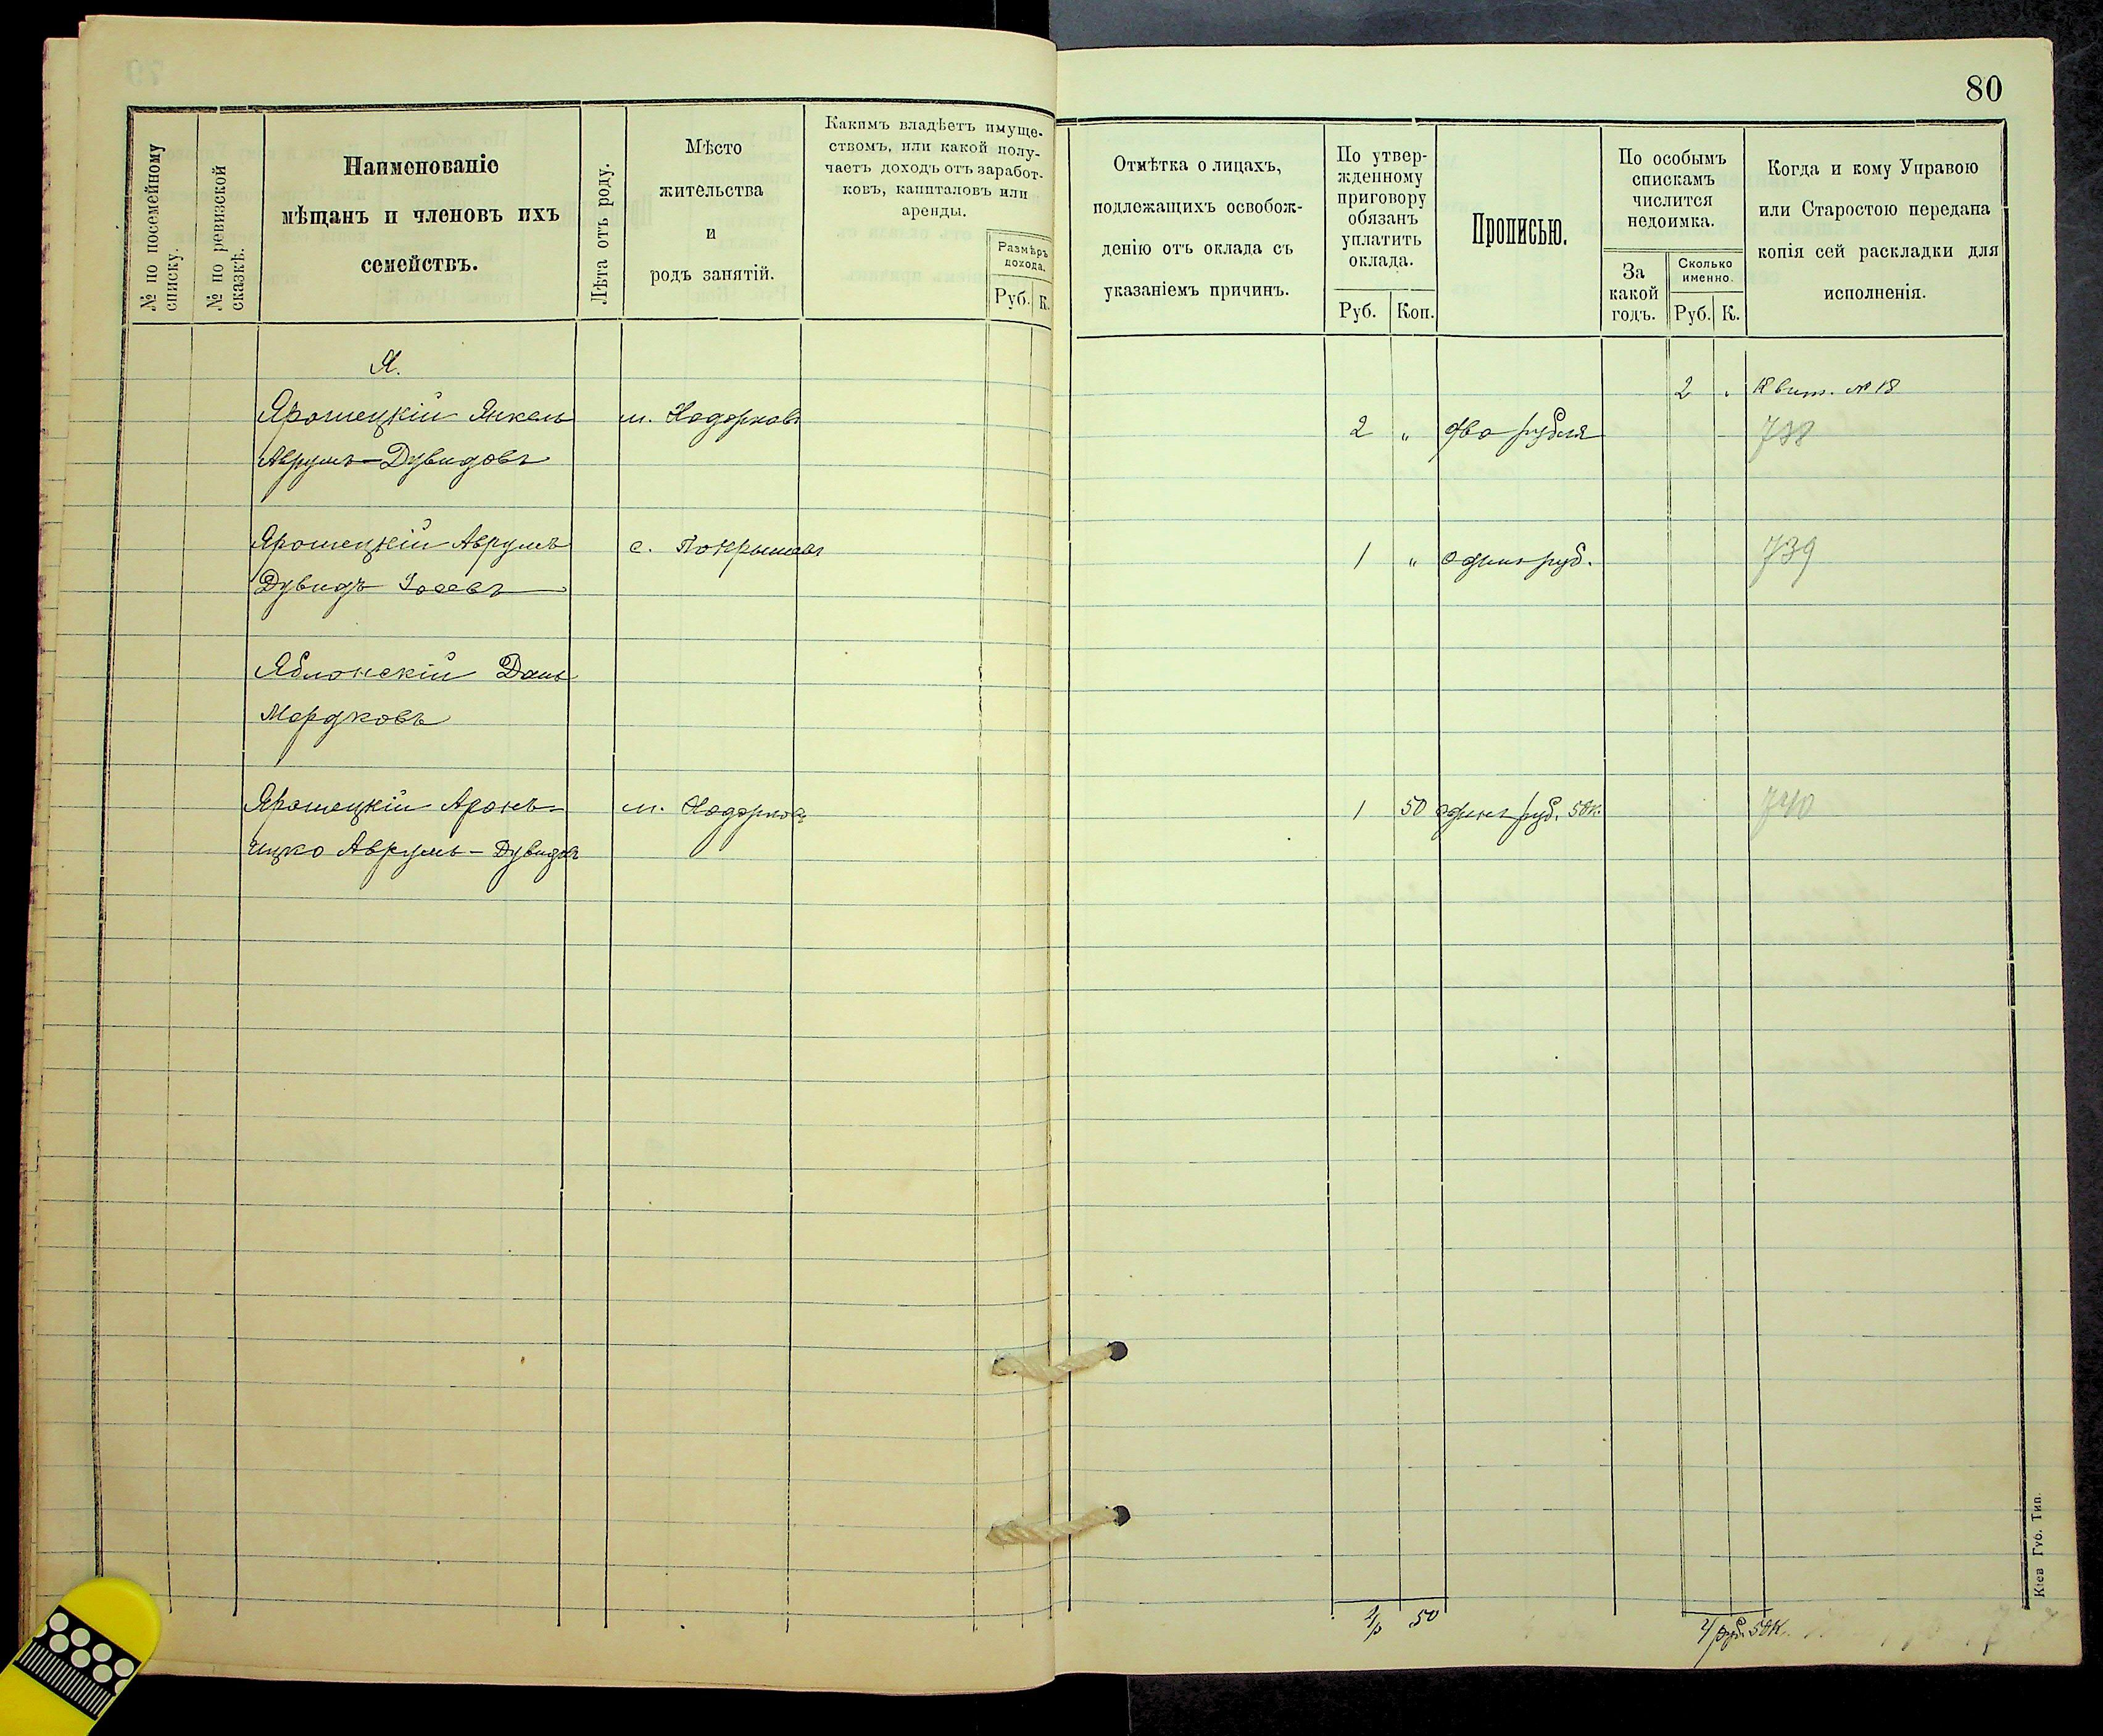 80
№ по посемейному
списку.
№ по ревизской
сказкѣ.
Наименованіе
мѣщанъ и членовъ ихъ
семействъ.
Лѣта отъ роду.
Мѣсто
жительства
и
родъ занятій.
Какимъ владѣетъ имуще-
ствомъ, или какой полу-
чаетъ доходъ отъ заработ-
ковъ, капиталовъ или
аренды.
Размѣръ
дохода.
Руб. К.
Отмѣтка о лицахъ,
подлежащихъ освобож-
денію отъ оклада съ
указаніемъ причинъ.
По утвер-
жденному
приговору
обязанъ
уплатить
оклада.
Руб. Коп.
Прописью.
По особымъ
спискамъ
числится
недоимка.
За
какой
годъ.
Сколько
именно.
Руб. К.
Когда и кому Управою
или Старостою передана
копія сей раскладки для
исполненія.
Я.
2 „ Квит. № 18
Ярошецкій Янкель м. Ходорковъ 2 „ два рубля 738
Аврумъ-Дувидовъ
Ярошецкій Аврумъ с. 1 „ Одинъ руб. 739
Дувидъ Іосевъ
Яблонскій
Мордковъ
Ярошецкій Аронъ- м. Ходорковъ 1 50 одинъ руб. 50к. 740
ицко Аврумъ-Дувидов
4р 50
4 руб. 50к.
Кіев Губ. Тип.